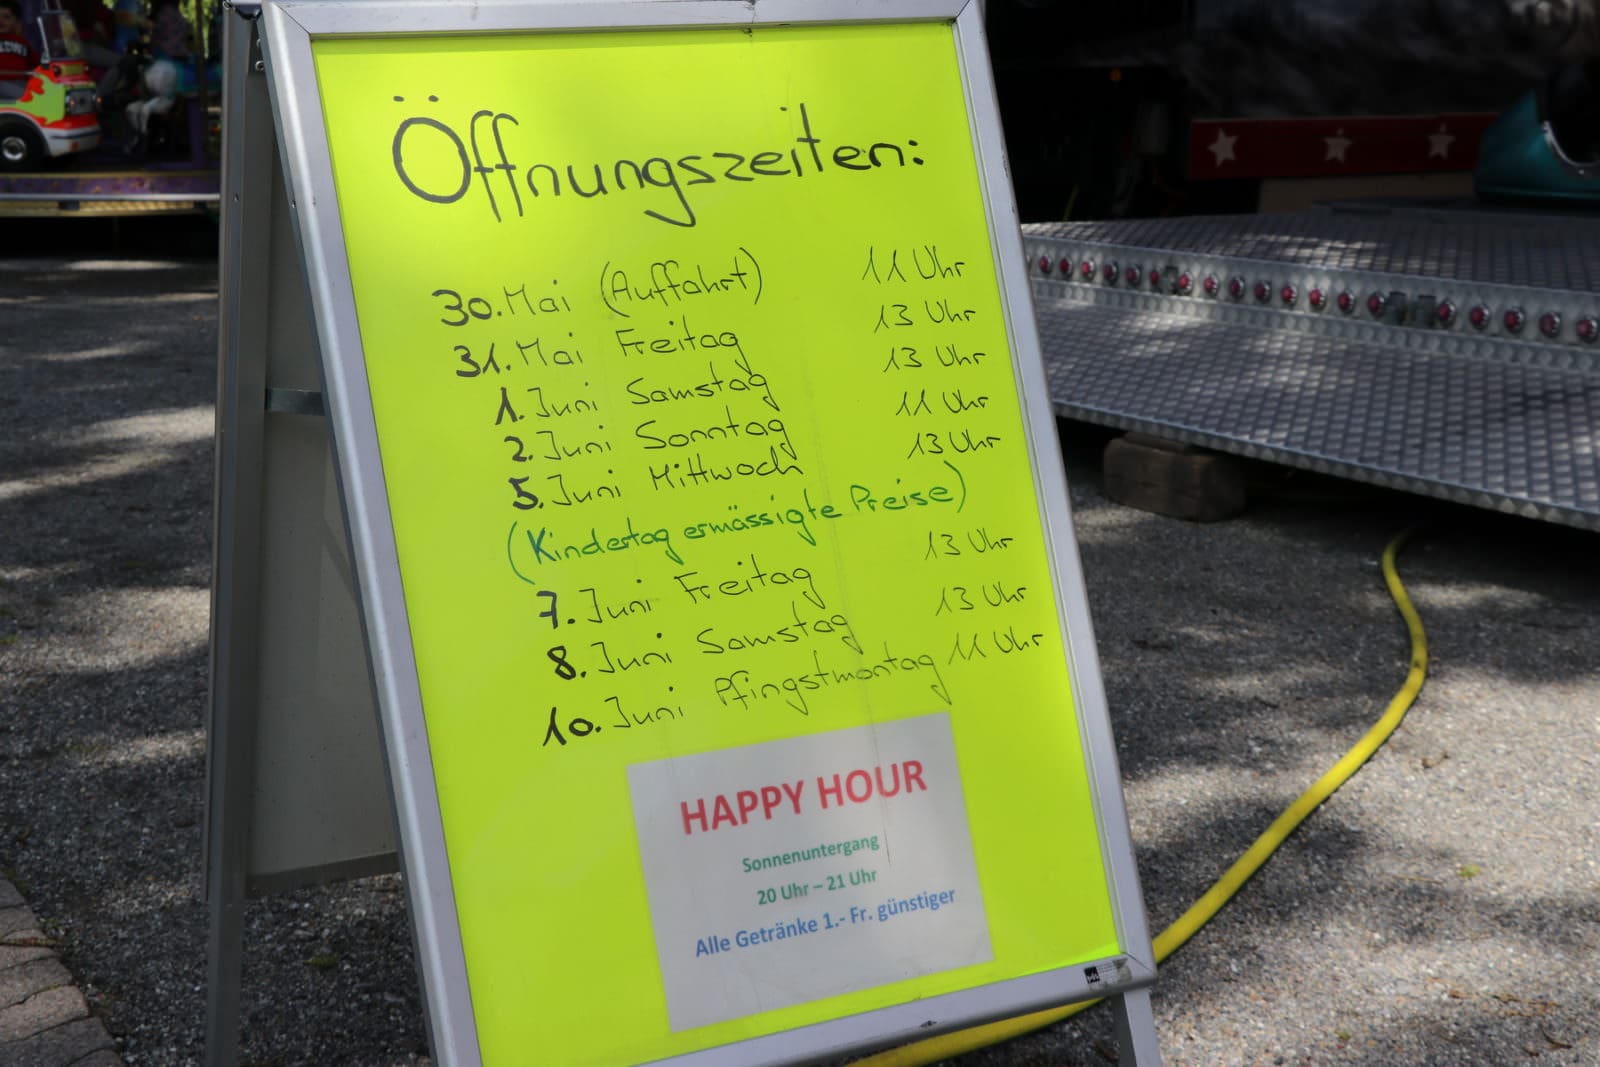 Öffnungszeiten:
30. Mai (Auffahrt) 11 Uhr
31. Mai Freitag 13 Uhr
1. Juni Samstag 13 Uhr
2. Juni Sonntag 11 Uhr
5. Juni Mittwoch 13 Uhr
(Kindertag ermässigte Preise)
7. Juni Freitag 13 Uhr
8. Juni Samstag 13 Uhr
10. Juni Pfingstmontag 11 Uhr
HAPPY HOUR
Sonnenuntergang
20 Uhr – 21 Uhr
Alle Getränke 1.- Fr. günstiger